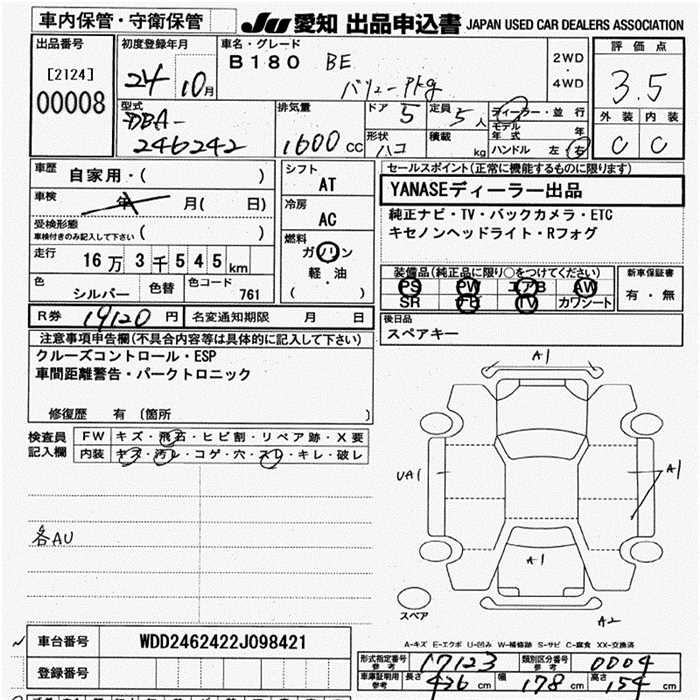 車内保管・守衛保管
JU 愛知 出品申込書 JAPAN USED CAR DEALERS ASSOCIATION
出品番号
[2124]
00008
初度登録年月
24 10月
車名・グレード
B180 BE
バリューPkg
2WD
・
4WD
評価点
3.5
外装 内装
C C
型式
DBA-
246242
排気量
1600 CC
ドア 5
定員 5人
形状 ハコ
積載 kg
ディーラー・並行
モデル年式 年
ハンドル 左 右
車歴 自家用・( )
車検 年 月( 日)
受検形態
車検付きのみ記入して下さい ( )
走行 16万3千545km
色 シルバー 色替 色コード 761
シフト
AT
冷房
AC
燃料
ガソリン
軽・油
( )
セールスポイント(正常に機能するものに限ります)
YANASEディーラー出品
純正ナビ・TV・バックカメラ・ETC
キセノンヘッドライト・Rフォグ
装備品(純正品に限り○をつけてください)
PS PW エアB AW
SR TV カワシート
新車保証書
有・無
R券 19120 円 名変通知期限 月 日
後日品
スペアキー
注意事項申告欄(不具合内容等は具体的に記入して下さい)
クルーズコントロール・ESP
車間距離警告・パークトロニック
修復歴 有 (箇所 )
検査員
記入欄
FW キズ・飛石・ヒビ割・リペア跡・X要
内装 キズ・汚レ・コゲ・穴・スレ・キレ・破レ
各AU
A1
UA1
A1
A1
A2
スペア
A-キズ E-エクボ U-凹み W-補修跡 S-サビ C-腐食 XX-交換済
車台番号 WDD2462422J098421
登録番号
形式指定番号 参考 17123
類別区分番号 参考 0004
車庫証明用 参考 長さ 436 cm 幅 178 cm 高さ 154 cm